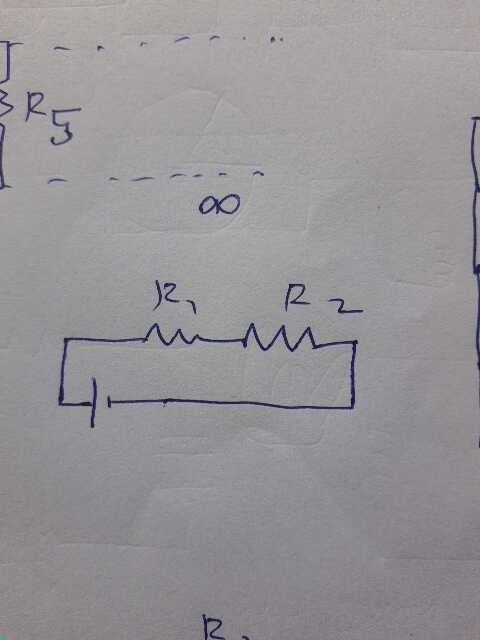 R5
∞
R1 R2
R